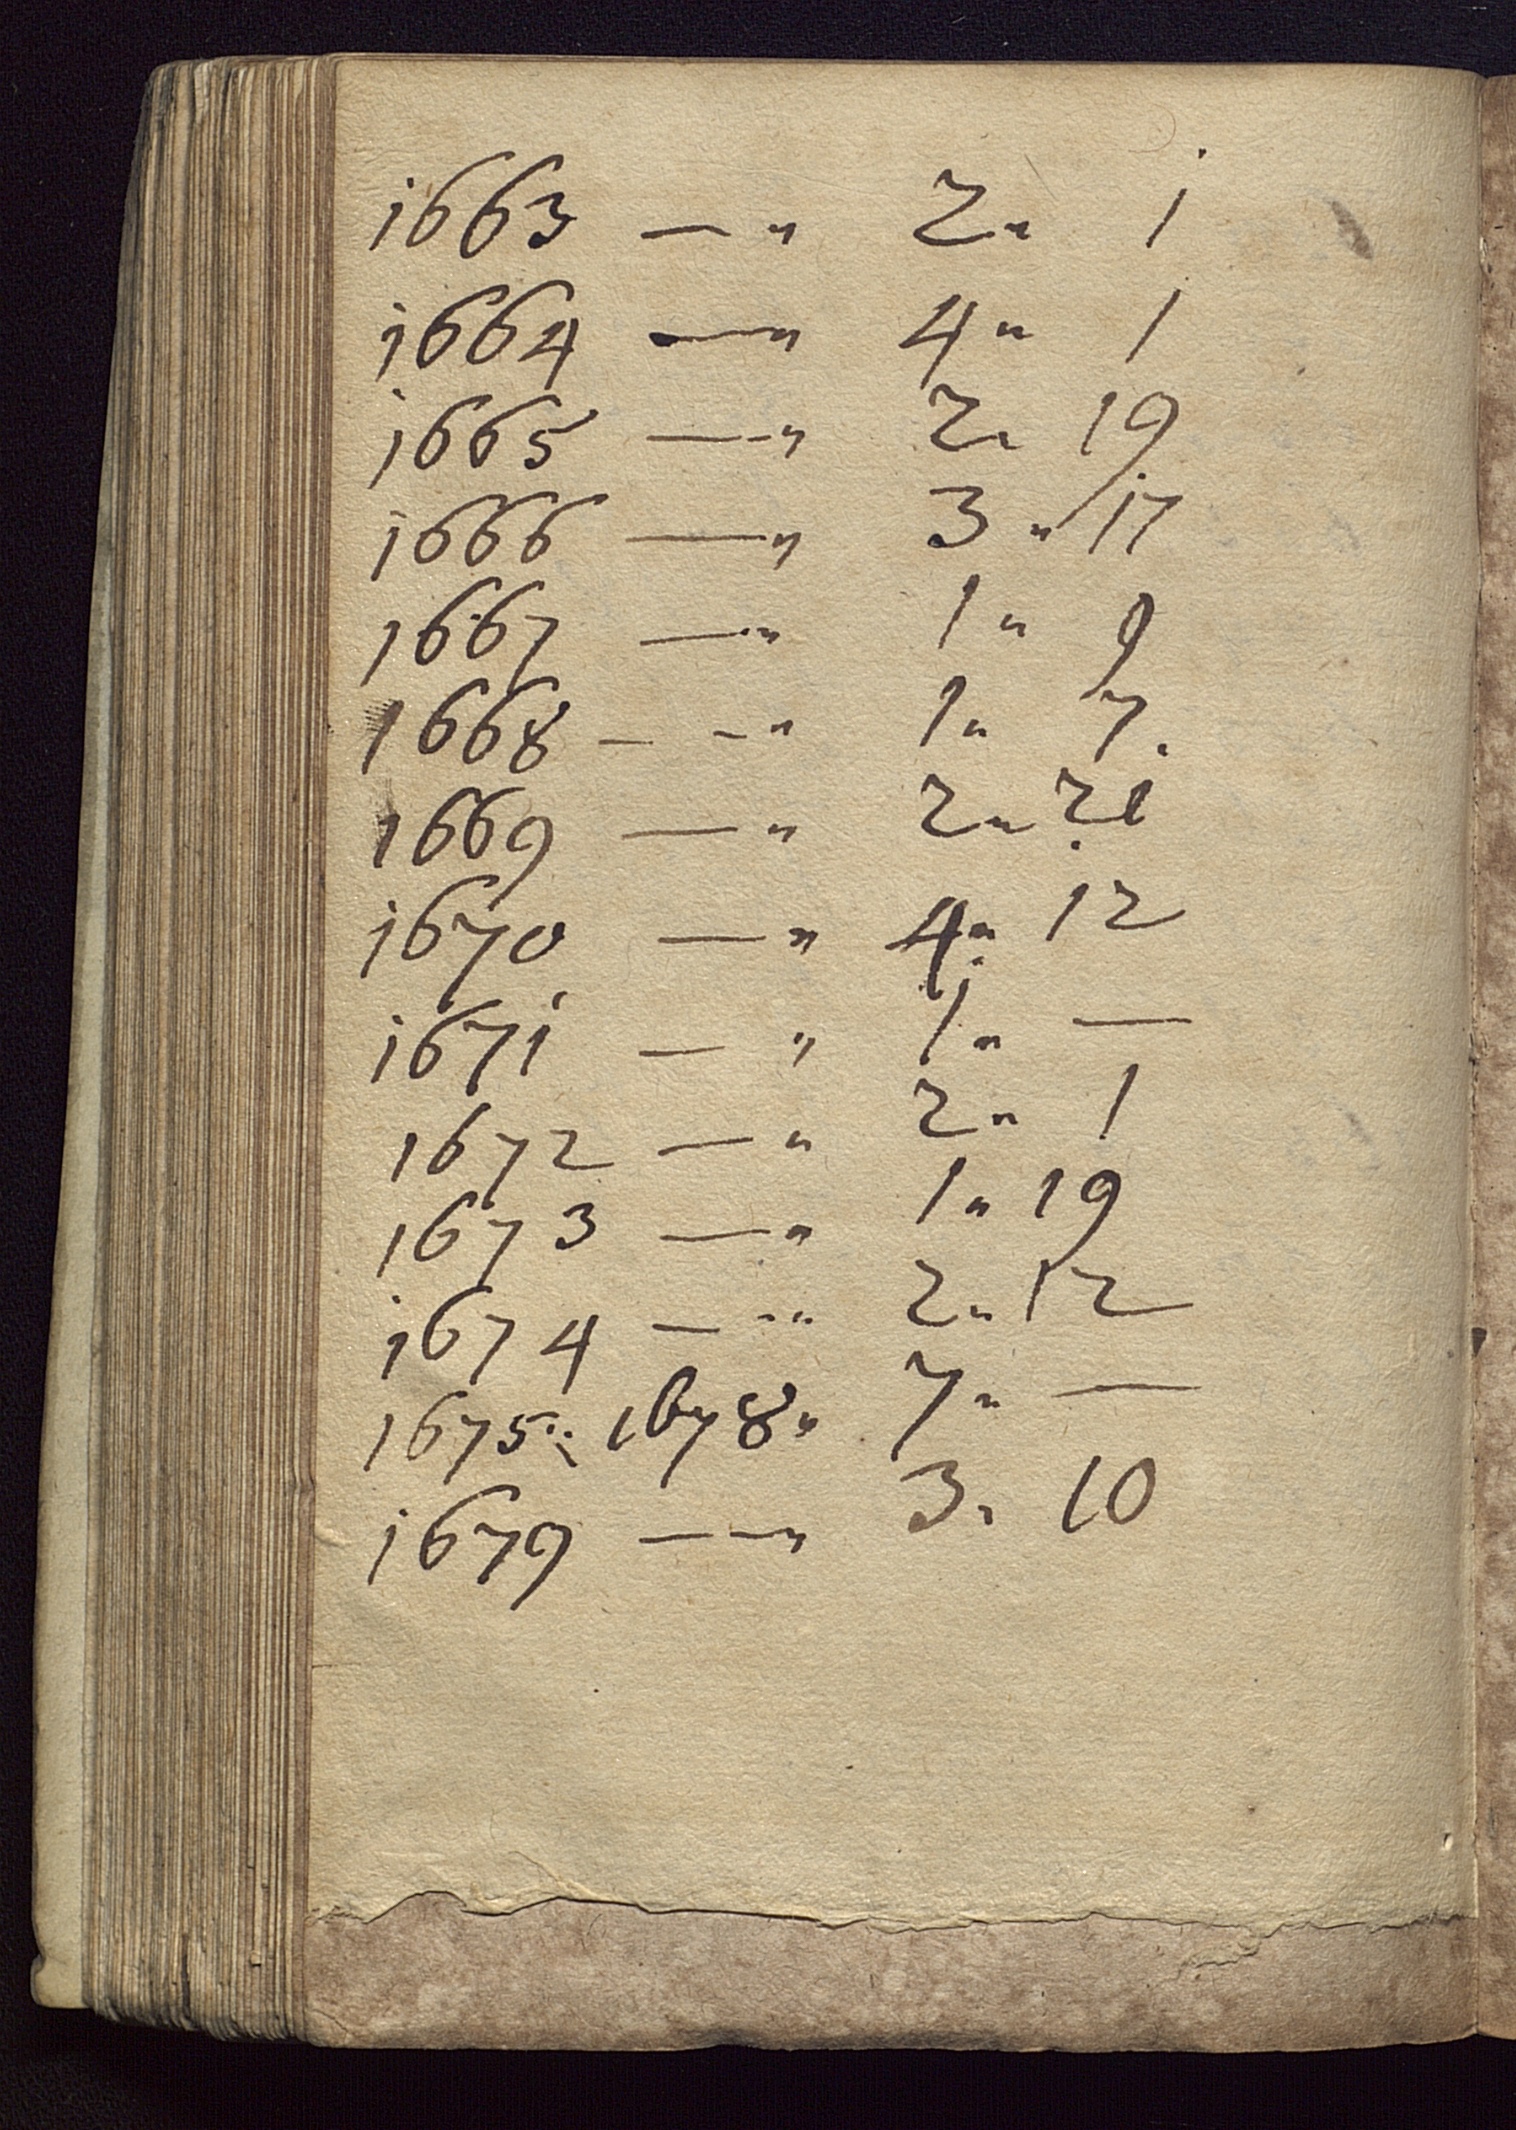 1663 — „ 2 „ 1
1664 — „ 4 „ 1
1665 — „ 2 „ 19
1666 — „ 3 „ 17
1667 — „ 1 „ 9
1668 — — „ 1 „ 7.
1669 — „ 2 „ 21
1670 — „ 4 „ 12
1671 — „ 1 „ —
1672 — „ 2 „ 1
1673 — „ 1 „ 19
1674 — „ 2 „ 12
1675 : 1678 „ 7 „ —
1679 — — „ 3 „ 10